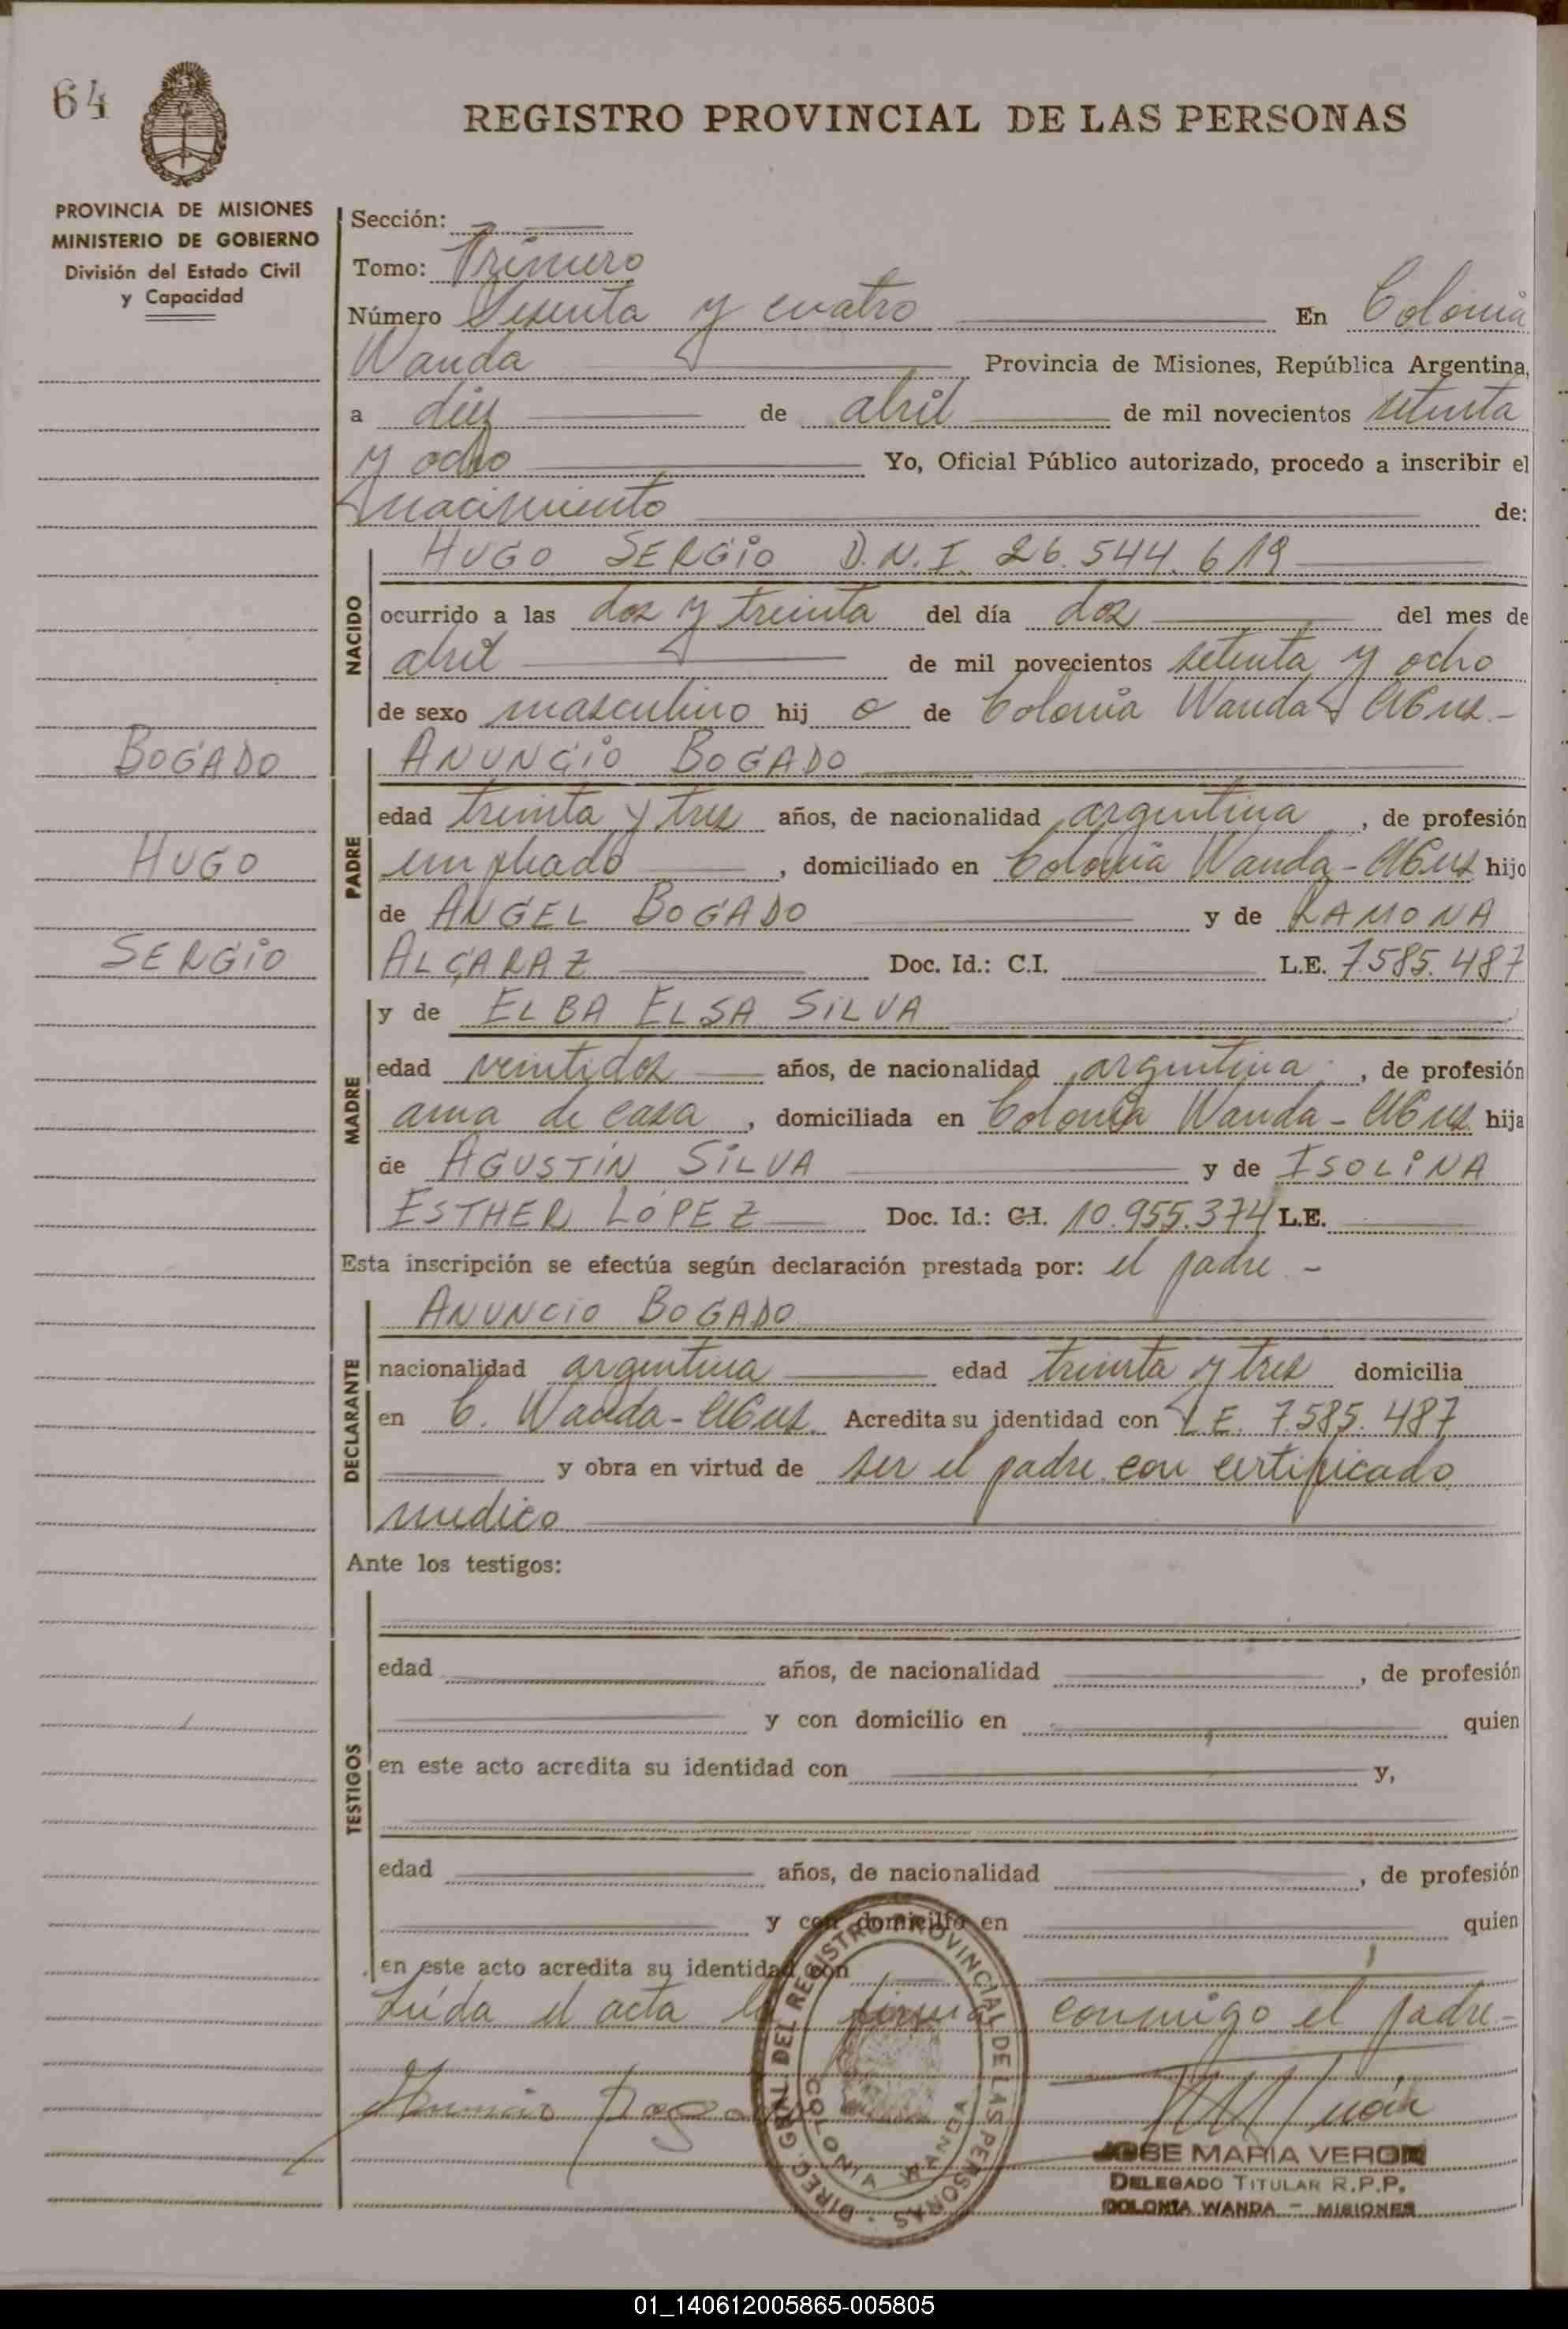 64
REGISTRO PROVINCIAL DE LAS PERSONAS
PROVINCIA DE MISIONES
MINISTERIO DE GOBIERNO
División del Estado Civil
y Capacidad
Sección:
Tomo: Primero
Número Sesenta y cuatro En Colonia
Wanda Provincia de Misiones, República Argentina,
a diez de abril de mil novecientos setenta
y ocho Yo, Oficial Público autorizado, procedo a inscribir el
nacimiento de:
NACIDO
HUGO SERGIO D.N.I. 26.544.619
ocurrido a las dos y treinta del día dos del mes de
abril de mil novecientos setenta y ocho
de sexo masculino hij o de Colonia Wanda
BOGADO
HUGO
SERGIO
PADRE
ANUNCIO BOGADO
edad treinta y tres años, de nacionalidad argentina, de profesión
empleado, domiciliado en Colonia Wanda - hijo
de ANGEL BOGADO y de RAMONA
ALCARAZ Doc. Id.: C.I. L.E. 7.585.487
MADRE
y de ELBA ELSA SILVA
edad veintidos años, de nacionalidad argentina, de profesión
ama de casa, domiciliada en Colonia Wanda - hija
de AGUSTIN SILVA y de ISOLINA
ESTHER LÓPEZ Doc. Id.: C.I. 10.955.374 L.E.
Esta inscripción se efectúa según declaración prestada por: el padre -
DECLARANTE
ANUNCIO BOGADO
nacionalidad argentina edad treinta y tres domicilia
en C. Wanda - Acredita su identidad con L.E. 7.585.487
y obra en virtud de ser el padre con certificado
medico
Ante los testigos:
TESTIGOS
edad años, de nacionalidad , de profesión
y con domicilio en quien
en este acto acredita su identidad con y,
edad años, de nacionalidad , de profesión
y con domicilio en quien
en este acto acredita su identidad con
Leída el acta la firma conmigo el padre -
DIREC. GRAL. DEL REGISTRO PROVINCIAL DE LAS PERSONAS
COLONIA WANDA
JOSE MARIA VERON
DELEGADO TITULAR R.P.P.
COLONIA WANDA - MISIONES
01_140612005865-005805